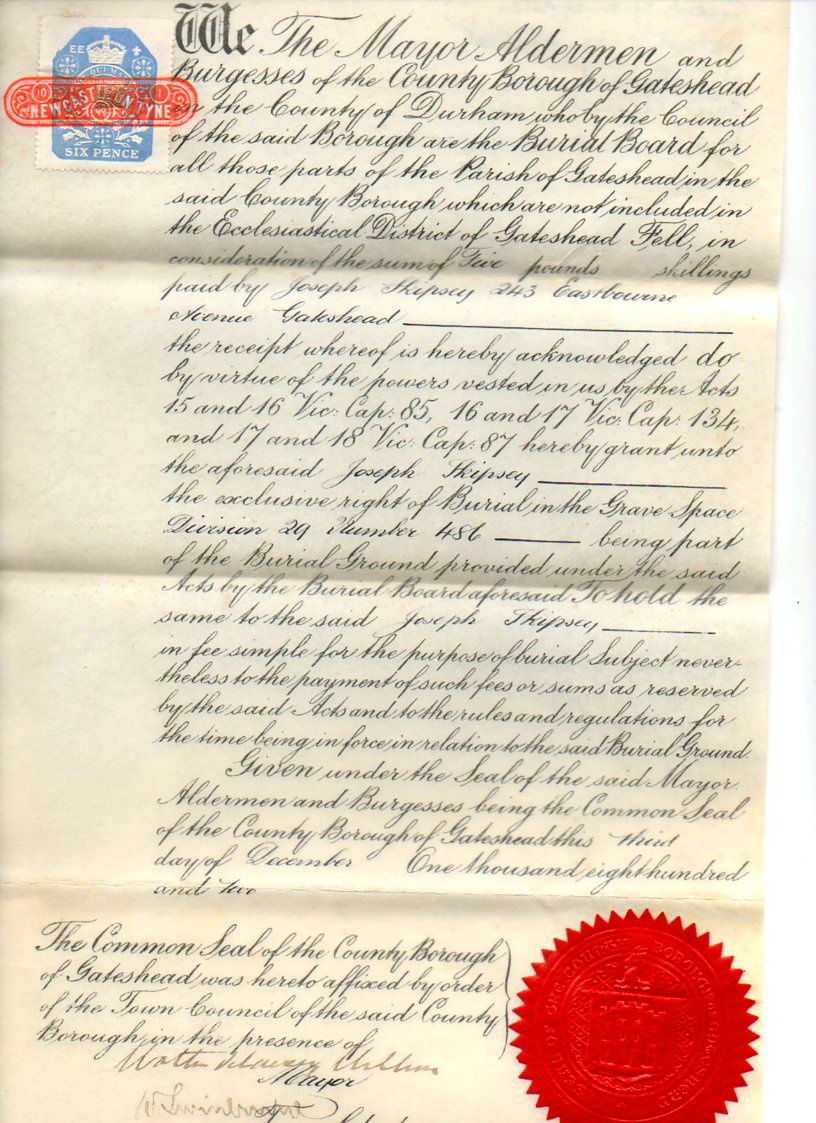 EE
NEWCASTLE-ON-TYNE
SIX PENCE
We The Mayor Aldermen and
Burgesses of the County Borough of Gateshead
in the County of Durham who by the Council
of the said Borough are the Burial Board for
all those parts of the Parish of Gateshead in the
said County Borough which are not included in
the Ecclesiastical District of Gateshead Fell, in
consideration of the sum of Two pounds shillings
paid by Joseph Skipsey 243 Eastbourne
Avenue Gateshead
the receipt whereof is hereby acknowledged do
by virtue of the powers vested in us by the Acts
15 and 16 Vic: Cap: 85, 16 and 17 Vic: Cap: 134,
and 17 and 18 Vic: Cap: 87 hereby grant unto
the aforesaid Joseph Skipsey
the exclusive right of Burial in the Grave Space
Division 29 Number 486 being part
of the Burial Ground provided under the said
Acts by the Burial Board aforesaid To hold the
same to the said Joseph Skipsey
in fee simple for the purpose of burial Subject never-
theless to the payment of such fees or sums as reserved
by the said Acts and to the rules and regulations for
the time being in force in relation to the said Burial Ground.
Given under the Seal of the said Mayor
Aldermen and Burgesses being the Common Seal
of the County Borough of Gateshead this third
day of December One thousand eight hundred
and two
The Common Seal of the County Borough
of Gateshead was hereto affixed by order
of the Town Council of the said County
Borough in the presence of
Mayor